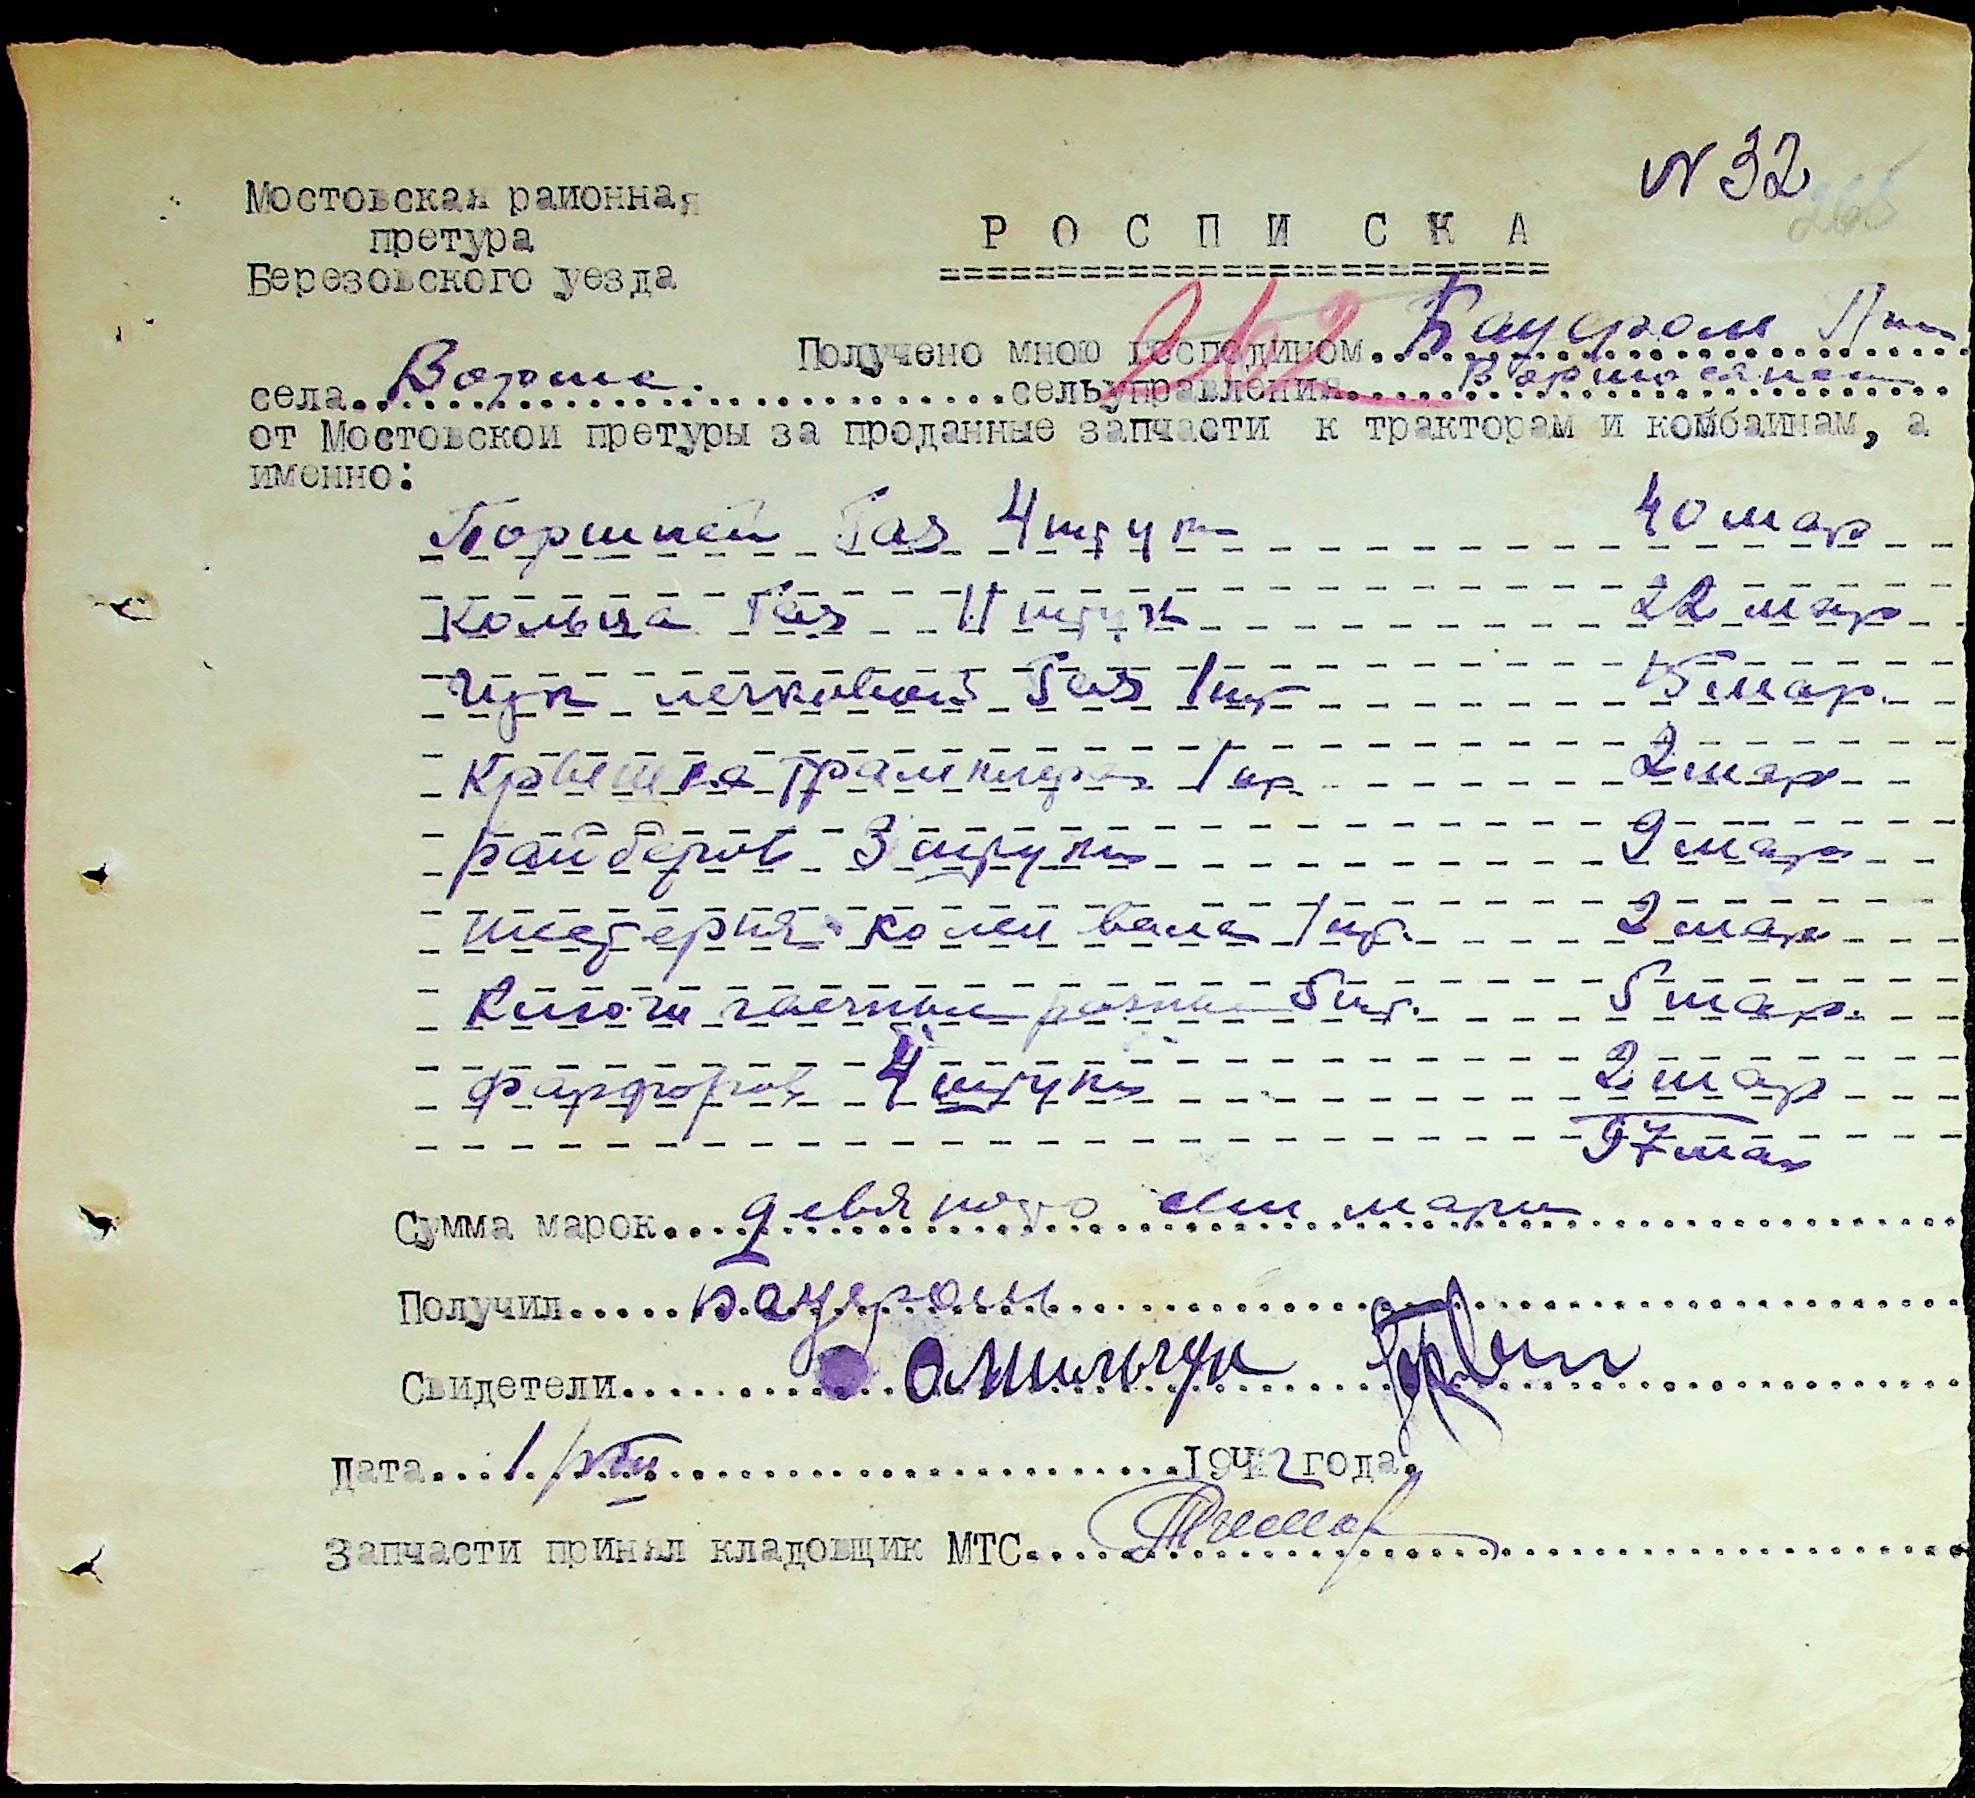 N 32
265
Мостовская районная
претура
Березовского уезда
Р О С П И С К А
262
Получено мною господином....Бауером
села....Вормс.....сельуправления....
от Мостовской претуры за проданные запчасти к тракторам и комбаинам, а
именно:
Поршней Газ 4 штук 40 мар
Кольца Газ 11 штук 22 мар
легковой Газ 1 шт 15 мар.
Крышка трамплера 1 шт. 2 мар
райберов 3 штук 9 мар
шестерня колен вала 1 шт. 2 мар
Ключи гаечные разные 5 шт. 5 мар.
фарфоров 4 штук 2 мар
97 мар
Сумма марок....девяносто сем марк
Получил.....Бауером
Свидетели....
Дата...1/VIII....1942 года.
Запчасти принял кладовщик МТС....